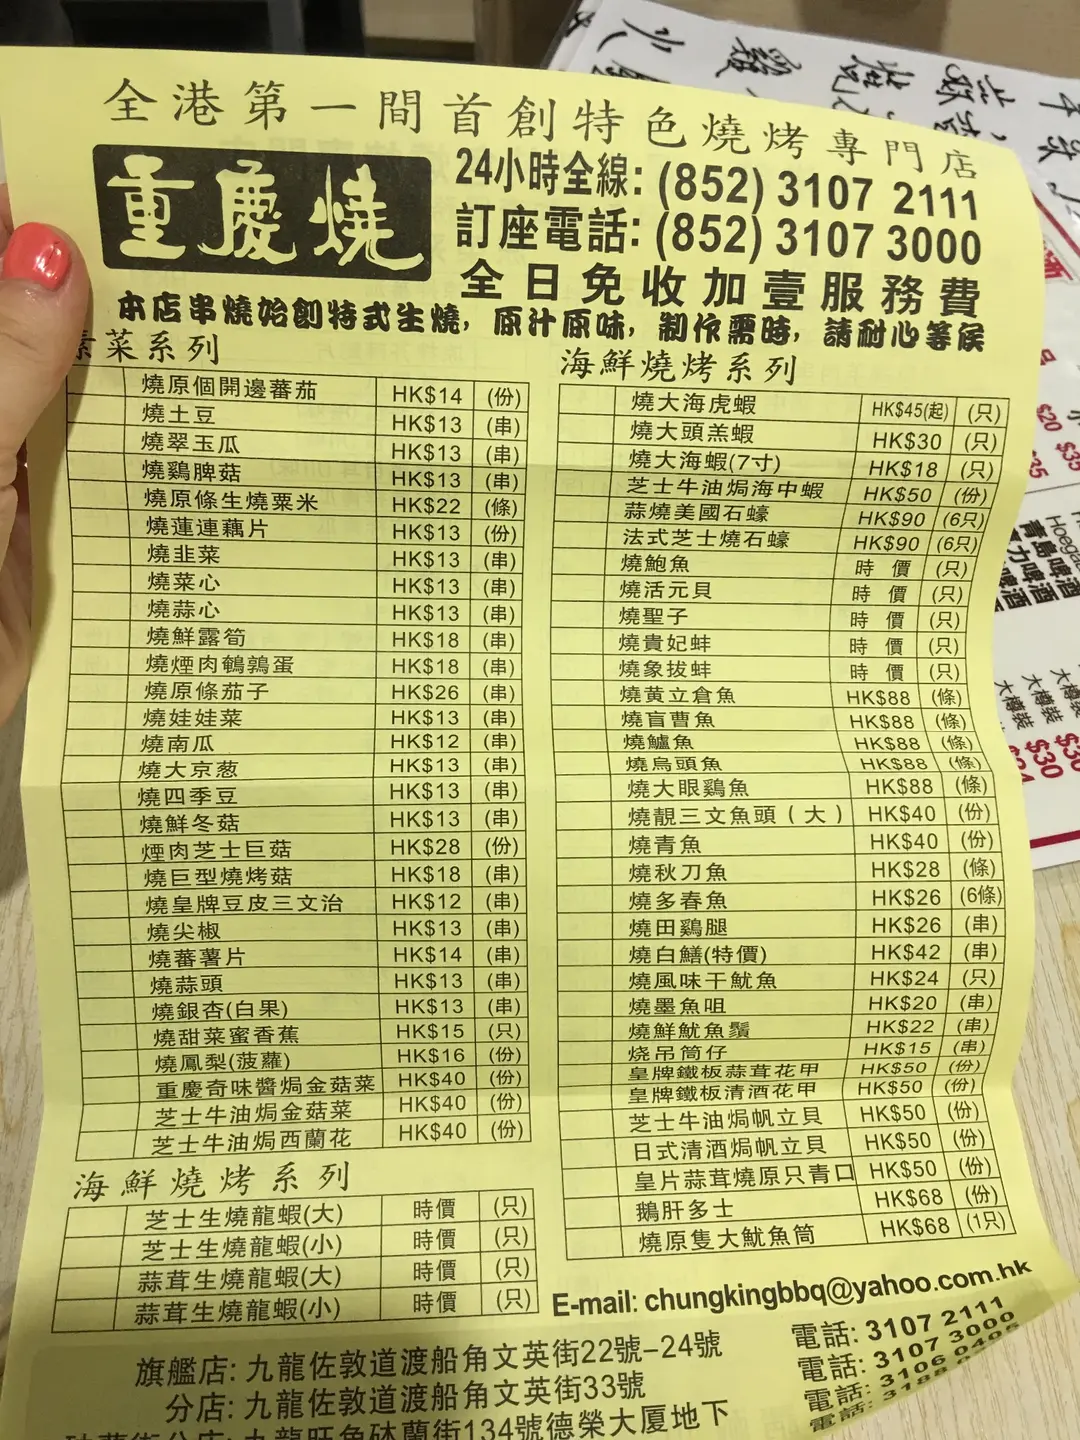 全港第一間首創特色燒烤專門店
重慶燒
24小時全線: (852) 3107 2111
訂座電話: (852) 3107 3000
全日免收加壹服務費
本店串燒始創特式生燒，原汁原味，制作需時，請耐心等侯
素菜系列
燒原個開邊蕃茄 HK$14 (份)
燒土豆 HK$13 (串)
燒翠玉瓜 HK$13 (串)
燒鷄脾菇 HK$13 (串)
燒原條生燒粟米 HK$22 (條)
燒蓮連藕片 HK$13 (份)
燒韭菜 HK$13 (串)
燒菜心 HK$13 (串)
燒蒜心 HK$13 (串)
燒鮮露筍 HK$18 (串)
燒煙肉鵪鶉蛋 HK$18 (串)
燒原條茄子 HK$26 (串)
燒娃娃菜 HK$13 (串)
燒南瓜 HK$12 (串)
燒大京葱 HK$13 (串)
燒四季豆 HK$13 (串)
燒鮮冬菇 HK$13 (串)
煙肉芝士巨菇 HK$28 (份)
燒巨型燒烤菇 HK$18 (串)
燒皇牌豆皮三文治 HK$12 (串)
燒尖椒 HK$13 (串)
燒蕃薯片 HK$14 (串)
燒蒜頭 HK$13 (串)
燒銀杏(白果) HK$13 (串)
燒甜菜蜜香蕉 HK$15 (只)
燒鳳梨(菠蘿) HK$16 (份)
重慶奇味醬焗金菇菜 HK$40 (份)
芝士牛油焗金菇菜 HK$40 (份)
芝士牛油焗西蘭花 HK$40 (份)
海鮮燒烤系列
芝士生燒龍蝦(大) 時價 (只)
芝士生燒龍蝦(小) 時價 (只)
蒜茸生燒龍蝦(大) 時價 (只)
蒜茸生燒龍蝦(小) 時價 (只)
海鮮燒烤系列
燒大海虎蝦 HK$45(起) (只)
燒大頭羔蝦 HK$30 (只)
燒大海蝦(7寸) HK$18 (只)
芝士牛油焗海中蝦 HK$50 (份)
蒜燒美國石蠔 HK$90 (6只)
法式芝士燒石蠔 HK$90 (6只)
燒鮑魚 時 價 (只)
燒活元貝 時 價 (只)
燒聖子 時 價 (只)
燒貴妃蚌 時 價 (只)
燒象拔蚌 時 價 (只)
燒黄立倉魚 HK$88 (條)
燒盲曹魚 HK$88 (條)
燒鱸魚 HK$88 (條)
燒烏頭魚 HK$88 (條)
燒大眼鷄魚 HK$88 (條)
燒靚三文魚頭（大） HK$40 (份)
燒青魚 HK$40 (份)
燒秋刀魚 HK$28 (條)
燒多春魚 HK$26 (6條)
燒田鷄腿 HK$26 (串)
燒白鱔(特價) HK$42 (串)
燒風味干魷魚 HK$24 (只)
燒墨魚咀 HK$20 (串)
燒鮮魷魚鬚 HK$22 (串)
烧吊筒仔 HK$15 (串)
皇牌鐵板蒜茸花甲 HK$50 (份)
皇牌鐵板清酒花甲 HK$50 (份)
芝士牛油焗帆立貝 HK$50 (份)
日式清酒焗帆立貝 HK$50 (份)
皇片蒜茸燒原只青口 HK$50 (份)
鵝肝多士 HK$68 (份)
燒原隻大魷魚筒 HK$68 (1只)
E-mail: chungkingbbq@yahoo.com.hk
旗艦店: 九龍佐敦道渡船角文英街22號-24號 電話: 3107 2111
分店: 九龍佐敦道渡船角文英街33號 電話: 3107 3000
九龍旺角砵蘭街134號德榮大厦地下 電話: 3106
電話: 3188
$20
$35
青島啤酒
大樽裝
大樽裝
$30